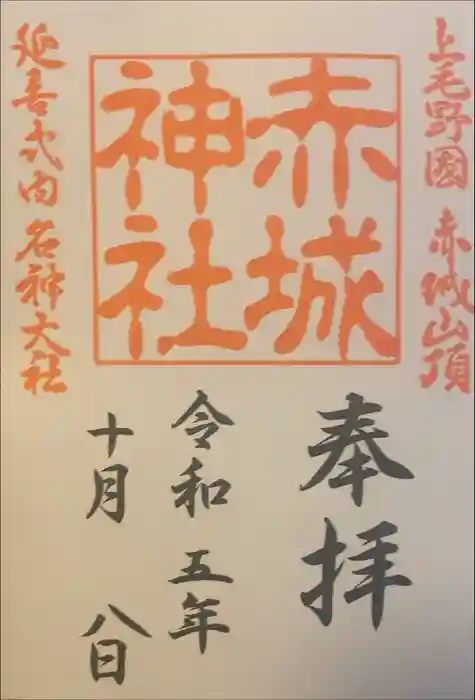 上毛野國 赤城山頂
赤城
神社
延喜式内 名神大社
奉拝
令和 五年
十月 八日